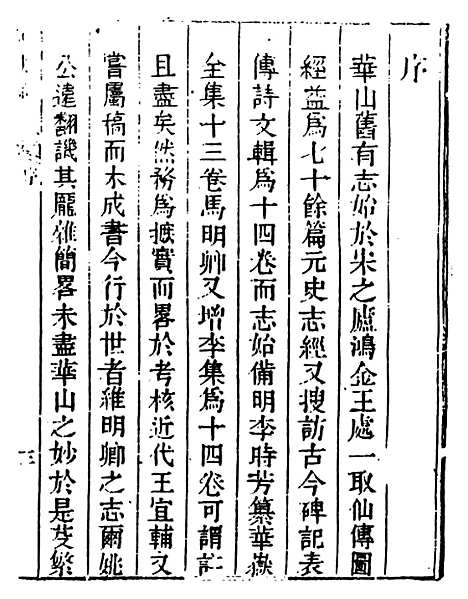 序
華山舊有志始於宋之盧鴻金王處一取仙傳圖
經益爲七十餘篇元史志經又搜訪古今碑記表
傳詩文輯爲十四卷而志始備明李時芳纂華嶽
全集十三卷馬明卿又增李集爲十四卷可謂詳
且盡矣然務爲摭實而畧於考核近代王宜輔又
嘗屬稿而未成書今行於世者維明卿之志爾姚
公遠翻譏其龎雜簡畧未盡華山之妙於是芟繁
序